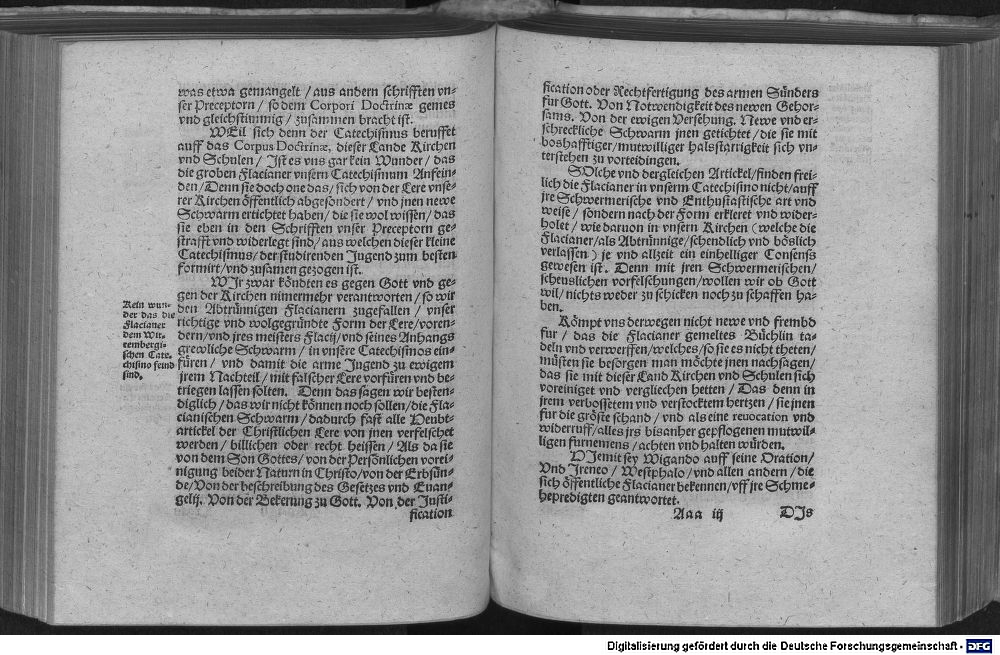 was etwa gemangelt / aus andern schrifften vn-
ser Preceptorn / so dem Corpori Doctrinæ gemes
vnd gleichstimmig / zusammen bracht ist.
WEil sich denn der Catechismus beruffet
auff das Corpus Doctrinæ, dieser Lande Kirchen
vnd Schulen / Ist es vns gar kein Wunder / das
die groben Flacianer vnsern Catechismum Anfein-
den / Denn sie doch one das / sich von der Lere vnse-
rer Kirchen öffentlich abgesondert / vnd jnen newe
Schwarm ertichtet haben / die sie wol wissen / das
sie eben in den Schrifften vnser Preceptorn ge-
strafft vnd widerlegt sind / aus welchen dieser kleine
Catechismus / der studirenden Jugend zum besten
formirt / vnd zusamen gezogen ist.
WIr zwar köndten es gegen Gott vnd ge-
gen der Kirchen nimermehr verantworten / so wir
den Abtrünnigen Flacianern zugefallen / vnser
richtige vnd wolgegründte Form der Lere / voren-
dern / vnd jres meisters Flacij / vnd seines Anhangs
grewliche Schwarm / in vnsere Catechismos ein-
füren / vnd damit die arme Jugend zu ewigem
jrem Nachteil / mit falscher Lere vorfüren vnd be-
triegen lassen solten. Denn das sagen wir besten-
diglich / das wir nicht können noch sollen / die Fla-
cianischen Schwarm / dadurch fast alle Heubt-
artickel der Christlichen Lere von jnen verfelschet
werden / billichen oder recht heissen / Als da sie
von dem Son Gottes / von der Persönlichen vorei-
nigung beider Naturn in Christo / von der Erbsün-
de / Von der beschreibung des Gesetzes vnd Euan-
gelij. Von der Bekerung zu Gott. Von der Justi-
fication
Kein wun-
der das die
Flacianer
dem Wit-
tembergi-
schen Cate-
chismo feind
sind.
fication oder Rechtfertigung des armen Sünders
fur Gott. Von Notwendigkeit des newen Gehor-
sams. Von der ewigen Versehung. Newe vnd er-
schreckliche Schwarm jnen getichtet / die sie mit
boshafftiger / mutwilliger halsstarrigkeit sich vn-
terstehen zu vorteidingen.
SOlche vnd dergleichen Artickel / finden frei-
lich die Flacianer in vnserm Catechismo nicht / auff
jre Schwermerische vnd Enthusiastische art vnd
weise / sondern nach der Form erkleret vnd wider-
holet / wie daruon in vnsern Kirchen (welche die
Flacianer / als Abtrünnige / schendlich vnd böslich
verlassen) je vnd allzeit ein einhelliger Consenss
gewesen ist. Denn mit jren Schwermerischen /
scheuslichen vorfelschungen / wollen wir ob Gott
wil / nichts weder zu schicken noch zu schaffen ha-
ben.
Kömpt vns derwegen nicht newe vnd frembd
fur / das die Flacianer gemeltes Büchlin ta-
deln vnd verwerffen / welches / so sie es nicht theten /
müsten sie besorgen man möchte jnen nachsagen /
das sie mit dieser Land Kirchen vnd Schulen sich
voreiniget vnd vergliechen hetten / Das denn in
jrem verbossetem vnd verstocktem hertzen / sie jnen
fur die gröste schand / vnd als eine reuocation vnd
widerruff / alles jrs bisanher gepflogenen mutwil-
ligen furnemens / achten vnd halten würden.
DJemit sey Wigando auff seine Oration /
Vnd Ireneo / Westphalo / vnd allen andern / die
sich öffentliche Flacianer bekennen / vff jre Schme-
hepredigten geantwortet.
Aaa iij DJs
Digitalisierung gefördert durch die Deutsche Forschungsgemeinschaft - DFG